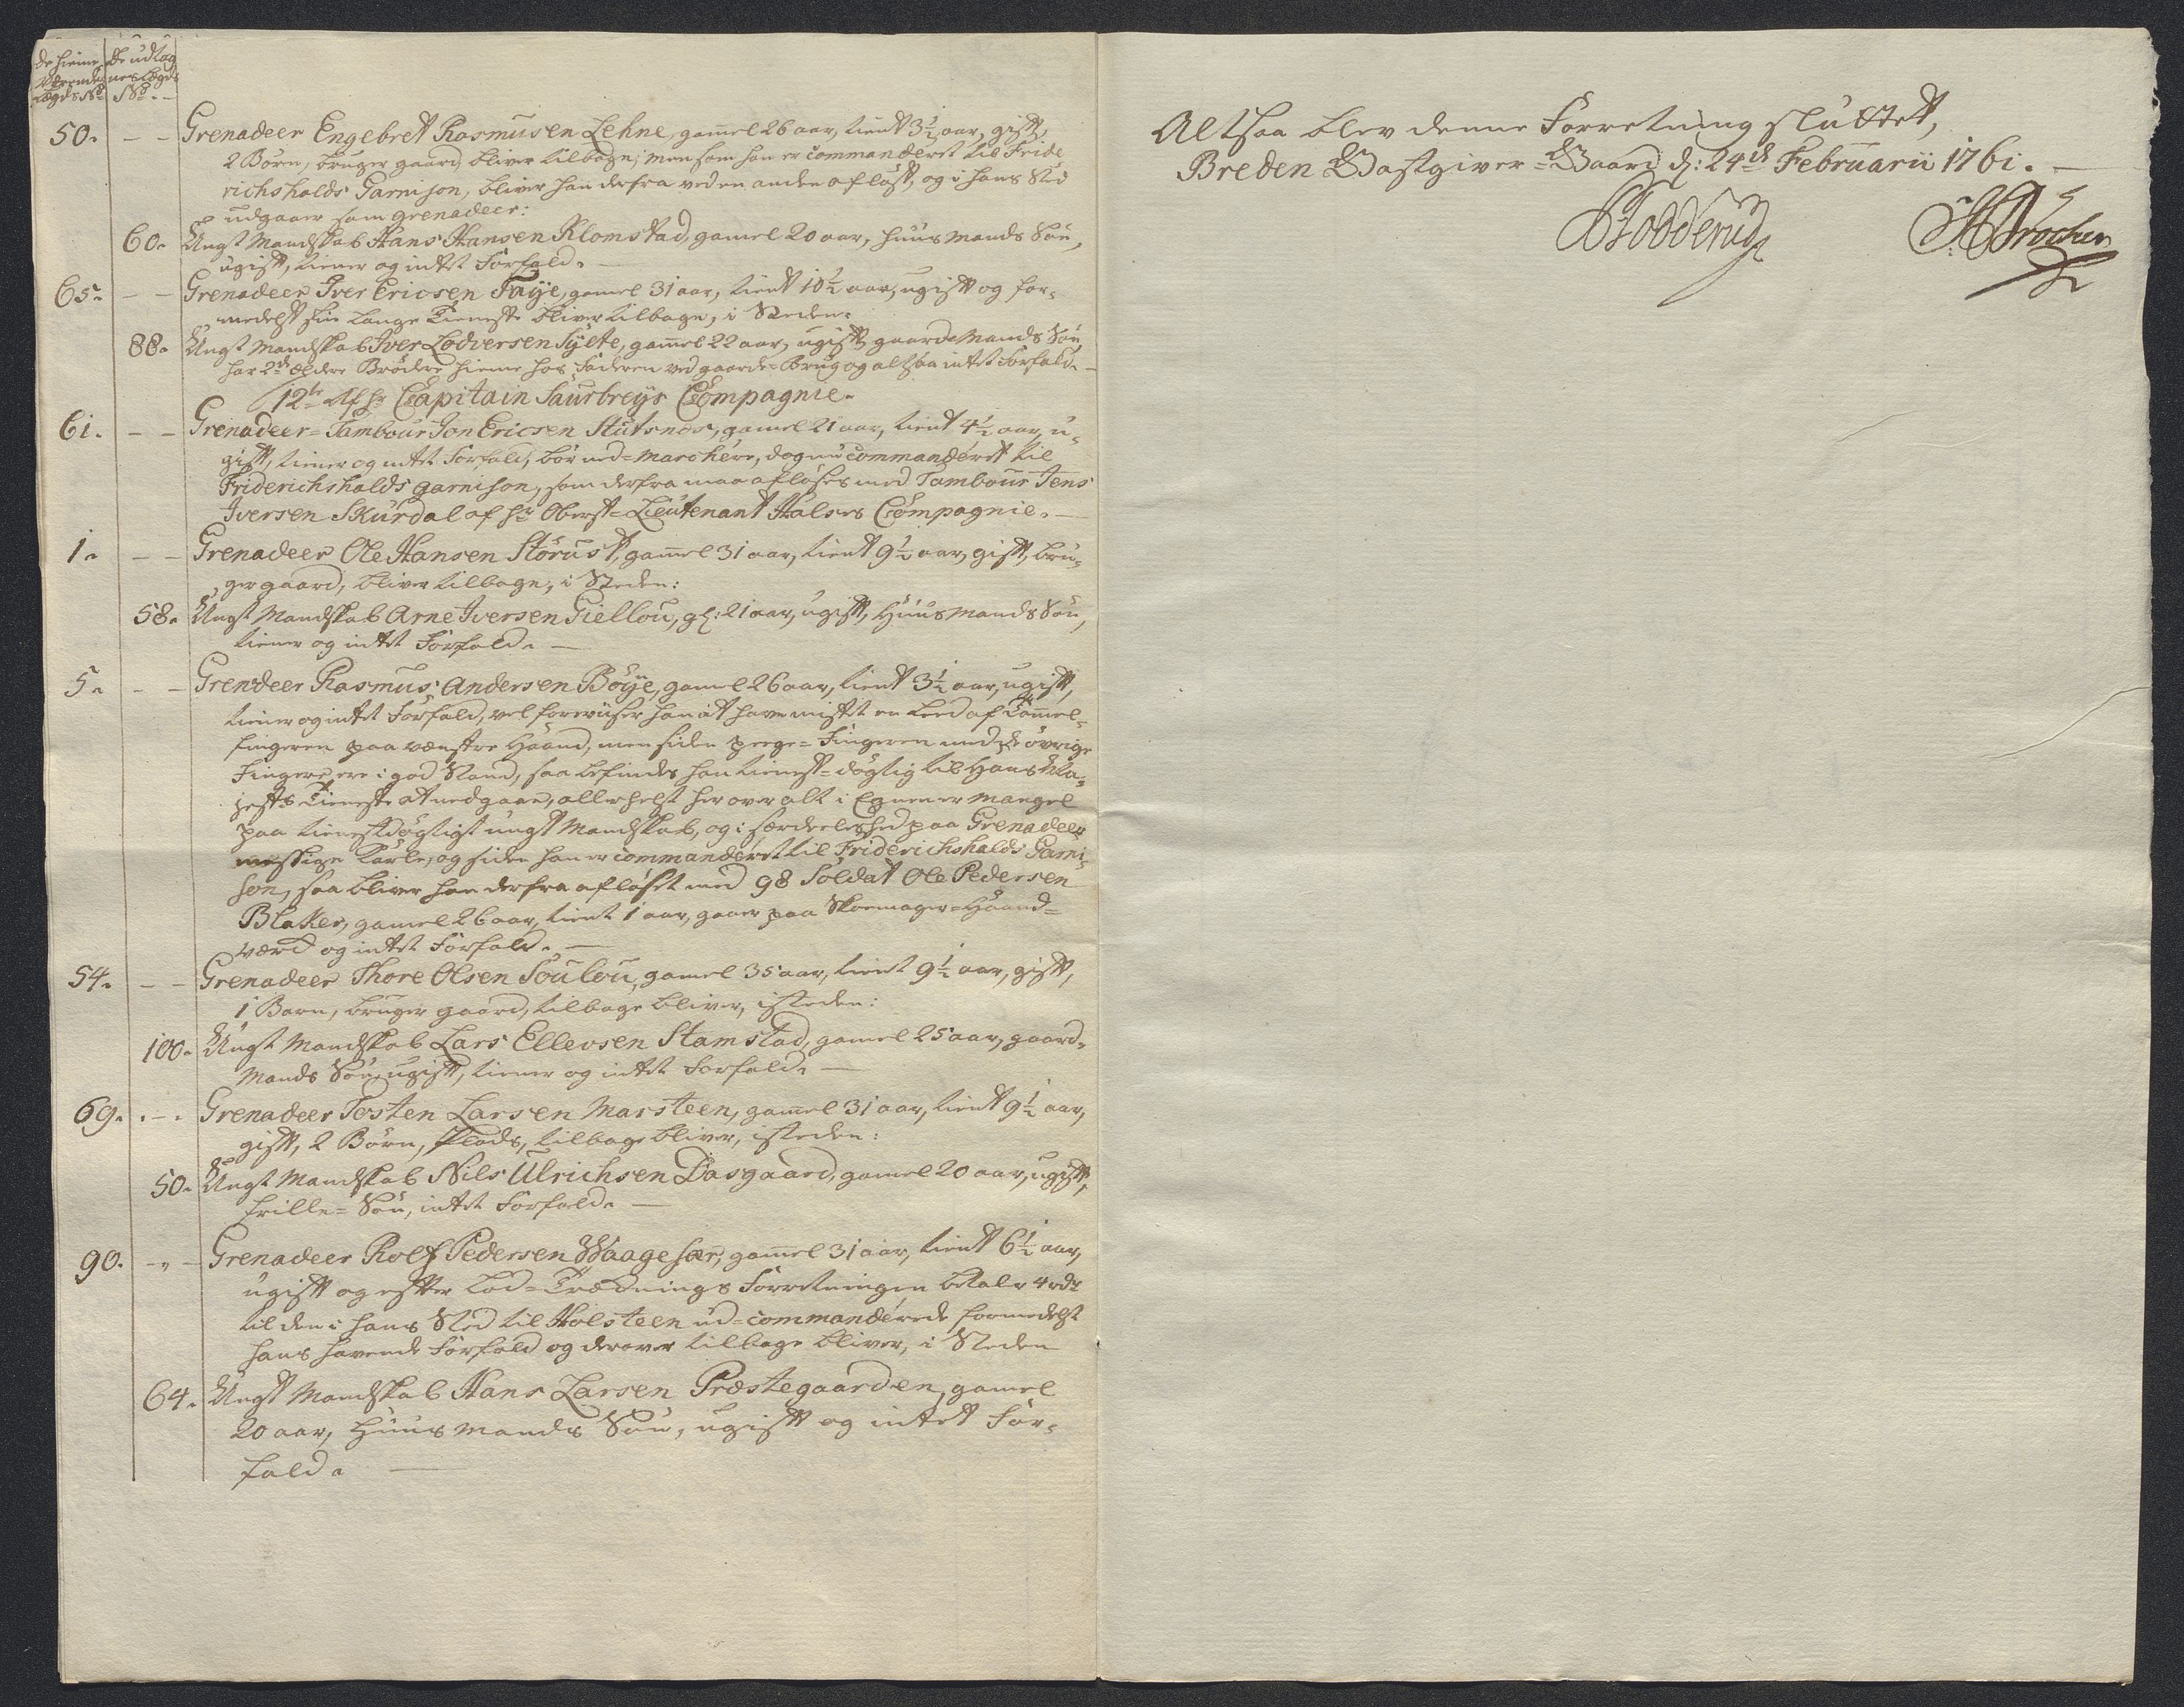 de hieme de udtag
værende nes Lægds
Lægds No No. -
50. - - Grenadeer Engebret Rasmusen Lehne, gamel 26 aar, tient 3½ aar, gift,
2 Börn, bruger gaard, bliver tilbage; men som han er commanderet til Fride
richshalds Garnison, bliver han derfra ved en anden aflöst, og i hans Sted
udgaaer som grenadeer:
60. Ungt Mandskab Hans Hansen Klomstad, gamel 20 aar, Huusmands Sön,
ugift, tiener og intet Forfald.
65. - - Grenadeer Iver Ericsen Faÿe, gamel 31 aar, tient 10½ aar, ugift og for=
medelst sin lange Tieneste bliver tilbage, i Steden:
88. Ungt Mandskab Iver Lodversen Sÿlte, gammel 22 aar, ugift, gaardMands Sön,
har 2de ældre Brödre hieme hos Faderen ved gaards=Brug og altsaa intet Forfald. -
12te Af Hr Capitain Saurbreÿs Compagnie.
61. - - Grenadeer=Tambour Jon Ericsen Stutsnes, gamel 21 aar, tient 4½ aar, u=
gift, tiener og intet Forfald, bör ned=marchere, dog nu commanderet til
Friderichshalds garnison, som derfra maa aflöses med Tambour Jens
Iversen Skurdal af Hr Oberst=Lieutenant Halses Compagnie. -
1. - - Grenadeer Ole Hansen Störust, gammel 31 aar, tient 9½ aar, gift, bru=
ger gaard, bliver tilbage, i Steden:
58. Ungt Mandskab Arne Iversen Giellou, gl: 21 aar, ugift, HuusMands Sön,
tiener og intet Forfald. -
5. - - Grenadeer Rasmus Andersen Böÿe, gamel 26 aar, tient 3½ aar, ugift,
tiener og intet Forfald, vel foreviiser han at have mistet en Leed af Tommel=
fingeren paa venstre Haand, men siden Peege=Fingeren med de övrige
Fingere ere i god Stand, saa befindes han tienest=dögtig til Hans Ma=
jestts Tieneste at nedgaae, allerhelst her over alt i Egnen er Mangel
paa tienestdögtigt ungt Mandskab, og i særdeeleshed paa Grenadeer
messige Karle, og siden han er commanderet til Friderichshalds Garni=
son, saa bliver han derfra aflöset med 98 Soldat Ole Pedersen
Blaker, gamel 26 aar, tient 1 aar, gaaer paa Skoemager=Haand=
værk og intet Forfald. -
54. - - Grenadeer Thore Olsen Soulou, gamel 35 aar, tient 9½ aar, gift,
1 Barn, bruger gaard, tilbage bliver, isteden:
100. Ungt Mandskab Lars Ellevsen Stamstad, gamel 25 aar, gaard=
Mands Sön, ugift, tiener og intet Forfald. -
69. - - Grenadeer Tosten Larsen Marsteen, gamel 31 aar, tient 9½ aar,
gift, 2 Börn, Plads, tilbage bliver, isteden:
50. Ungt Mandskab Nils Ulrichsen Dasgaard, gamel 20 aar, ugift,
Frille=Sön, intet Forfald. -
90. - - Grenadeer Rolf Pedersen Waagesær, gammel 31 aar, tient 6½ aar,
ugift og efter Lod=Træknings Forretningen betaler 4 rdr
til den i hans Sted til Holsteen ud=commanderede formedelst
hans havende Forfald og derover tilbage bliver, i Steden
64. Ungt Mandskab Hans Larsen Præstegaarden, gamel
20 aar, Huus Mands Sön, ugift og intet For=
fald. -
Altsaa blev denne Forretning sluttet,
Breden Gastgiver=Gaard d: 24de Februarii 1761. -